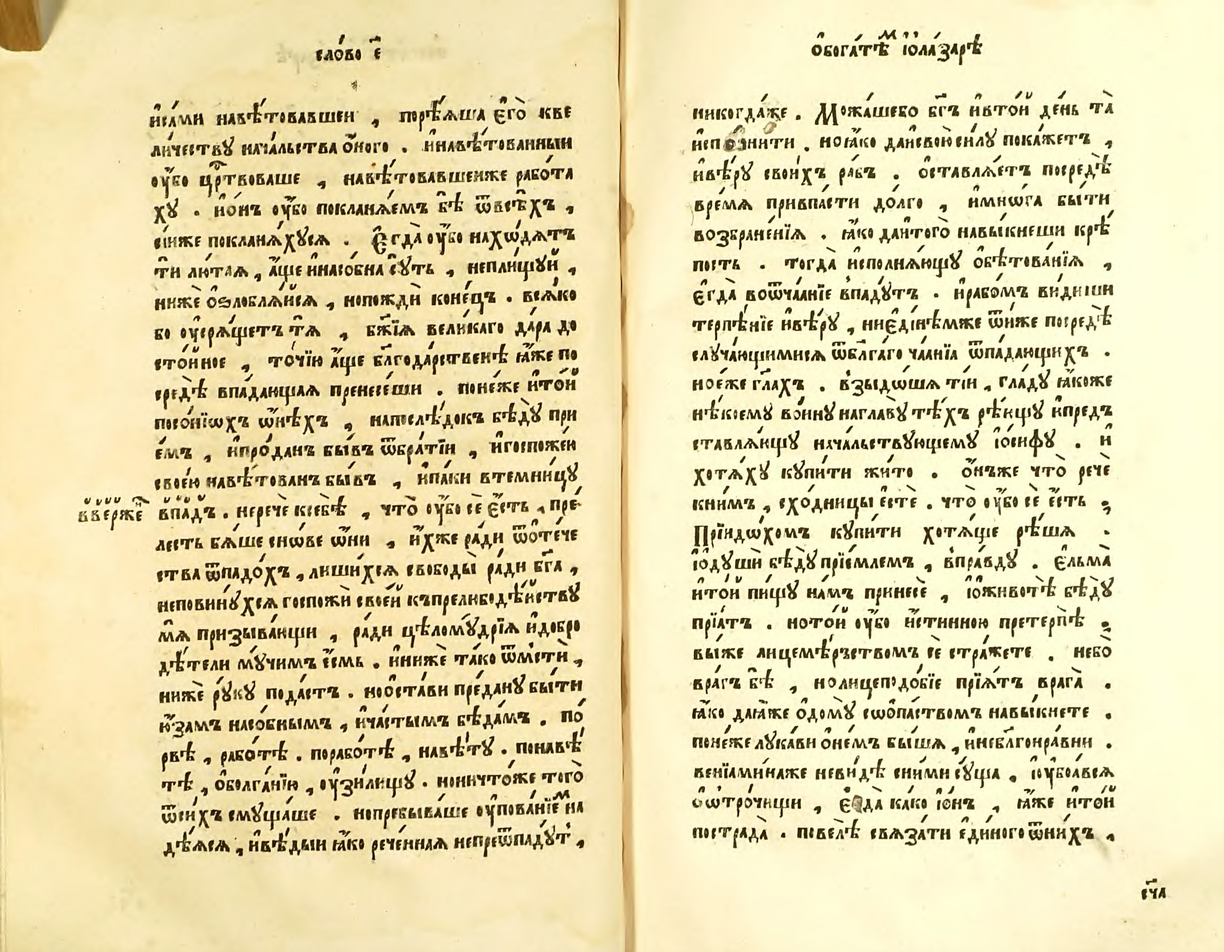 сло́во є҃
и҆са́ми навѣ́товавшеи , порѣ́ѧша є҆го̀ кве
ли́честву нача́льства о҆́ного . и҆навѣ́тованныи
ᲂу҆́бо црⷭ҇твоваше , навѣ́товавшеиже рабо́та
ху . и҆о́нъ ᲂу҆бо покланѧ́емъ бѣ̀ ѿвсѣ́хъ ,
сі́иже покланѧ́хусѧ . Є҆гда̀ ᲂу҆бо нахѡ́дѧтъ
ти лю́таѧ , а҆́ще и҆насо́бна сꙋ́ть , непли́щуй ,
нижѐ о҆ѕлоблѧ́йсѧ , нопождѝ коне́цъ . всѧ́ко
бо ᲂу҆срѧ́щетъ тѧ̀ , бж҃їѧ вели́каго да́ра до
сто́йное , то́чїю а҆́ще бл҃года́рственѣ ꙗ҆́же по
средѣ̀ впа́дающаѧ пренесе́ши . поне́же и҆то́й
посо́нїѡхъ ѡ҆нѣ́хъ , напослѣ́докъ бѣ́ду прї
е́мъ , и҆про́данъ бы́въ ѿбра́тїи , и҆госпоже́ю
своє́ю навѣ́тованъ бы́въ , и҆па́ки втемни́цу
вве́рже
впа́дъ . неречѐ ксебѣ̀ , что̀ ᲂу҆бо сѐ є҆́сть , пре́
лесть бѧ́ше сно́ве ѡ҆́ни , и҆́хже ра́ди ѿо҆те́че
ства ѿпадо́хъ , лиши́хсѧ свобо́ды ра́ди бг҃а ,
неповину́хсѧ госпожѝ свое́й къпрелюбодѣ́йству
мѧ̀ призыва́ющи , ра́ди цѣлому́дрїѧ и҆добро
дѣ́тели му́чимъ є҆́смь . и҆нижѐ та́ко ѿмстѝ ,
нижѐ ру́ку пода́стъ . ноо҆ста́ви пре́дану бы́ти
ю҆́замъ насо́бнымъ , и҆ча́стымъ бѣда́мъ . по́
рвѣ , рабо́тѣ . порабо́тѣ , навѣ́ту . понавѣ́
тѣ , о҆болга́нїю , ᲂу҆зи́лищу . ноничто́же того̀
ѿси́хъ смуща́ше . нопребыва́ше ᲂу҆пова́нїемъ на
дѣ́ѧсѧ , и҆вѣ́дыи ꙗ҆́ко рече́ннаѧ непреѿпаду́тъ ,
о҆бога́тѣмъ и҆ѡла́зарѣ
никогда́же . Можа́шебо бг҃ъ и҆вто́й де́нь та̀
и҆спо́лнити . ноꙗ҆́ко даи҆свою̀си́лу пока́жетъ ,
и҆вѣ́ру свои́хъ ра́бъ . о҆ставлѧ́етъ посредѣ̀
вре́мѧ привпа́сти до́лго , и҆мнѡ́га бы́ти
возбране́нїѧ . ꙗ҆́ко дан̾того̀ навы́кнеши крѣ́
пость . тогда̀ и҆сполнѧ́ющу о҆бѣтова́нїѧ ,
є҆гда̀ воѿча́ѧнїе впаду́тъ . и҆рабо́мъ ви́диши
терпѣ́нїе и҆вѣ́ру , ниєди́нѣмже ѿи҆́же посредѣ̀
случа́ющимисѧ ѿбл҃га́го ча́ѧнїѧ ѿпа́дающихъ .
ное҆́же гл҃ахъ . взыдѡ́шѧ ті́и , гла́ду ꙗ҆́коже
нѣ́коему во́ину наглаву̀тѣ́хъ рѣ́ющу и҆пред
ставлѧ́ющу нача́льствующему і҆ѡ́сифу . и҆
хотѧ́ху купи́ти жи́то . о҆́нъже что̀ речѐ
кни́мъ , схо́дницы є҆стѐ . что̀ ᲂу҆бо сѐ є҆́сть ;
Прїидѡ́хомъ купи́ти хотѧ́ще рѣ́шѧ .
і҆ѡду́ши бѣ́ду прїе́млемъ , впра́вду . є҆льма̀
и҆то́й пи́щу на́мъ принесѐ , і҆ѡживотѣ̀ бѣ́ду
прїѧ́тъ . ното́й ᲂу҆бо и҆́стинною претерпѣ̀ ;
вы́же лицемѣ́рьствомъ сѐ стра́жете . не́бо
вра́гъ бѣ̀ , нолицеподо́бїе прїѧ́тъ врага̀ .
ꙗ҆́ко даꙗ҆́же о҆дому̀ сѡо҆па́ствомъ навы́кнете .
поне́же лука́ви о҆не́мъ бы́шѧ , и҆небл҃гонра́вни .
венїами́наже неви́дѣ сни́ми су́ща , і҆ѹбоѧ́всѧ
о҆ѡ҆тро́чищи , є҆да̀ ка́ко і҆ѡ́нъ , ꙗ҆́же и҆то́й
пострада̀ . повелѣ̀ свѧза́ти є҆ди́ного ѿни́хъ ,
сч҃а